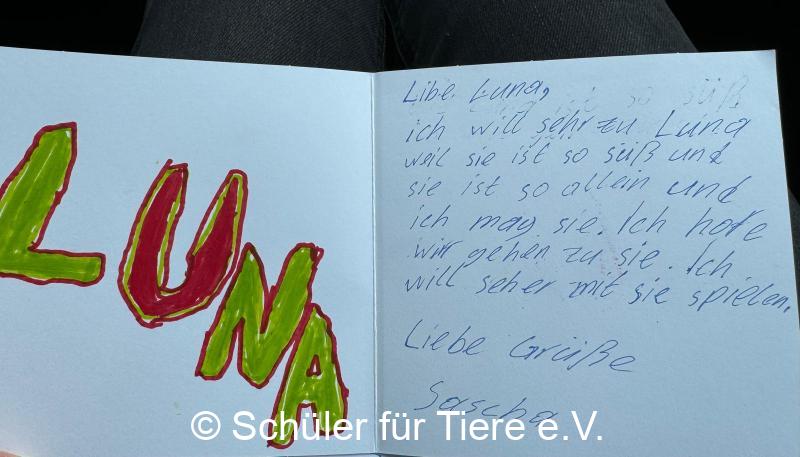 LUNA
Libe Luna,
ich will sehr zu Luna
weil sie ist so süß und
sie ist so allein und
ich mag sie. Ich hofe
wir gehen zu sie. Ich
will seher mit sie spielen.
Liebe Grüße
Sascha
© Schüler für Tiere e.V.